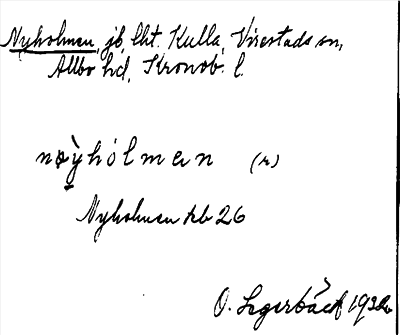 Nyholmen, jb, lht. Kulla, Virestads sn,
Allbo hd, Kronob. l.
nøỳhòlmen (n)
Nyholmen kb 26
O. Legerbäck 1932